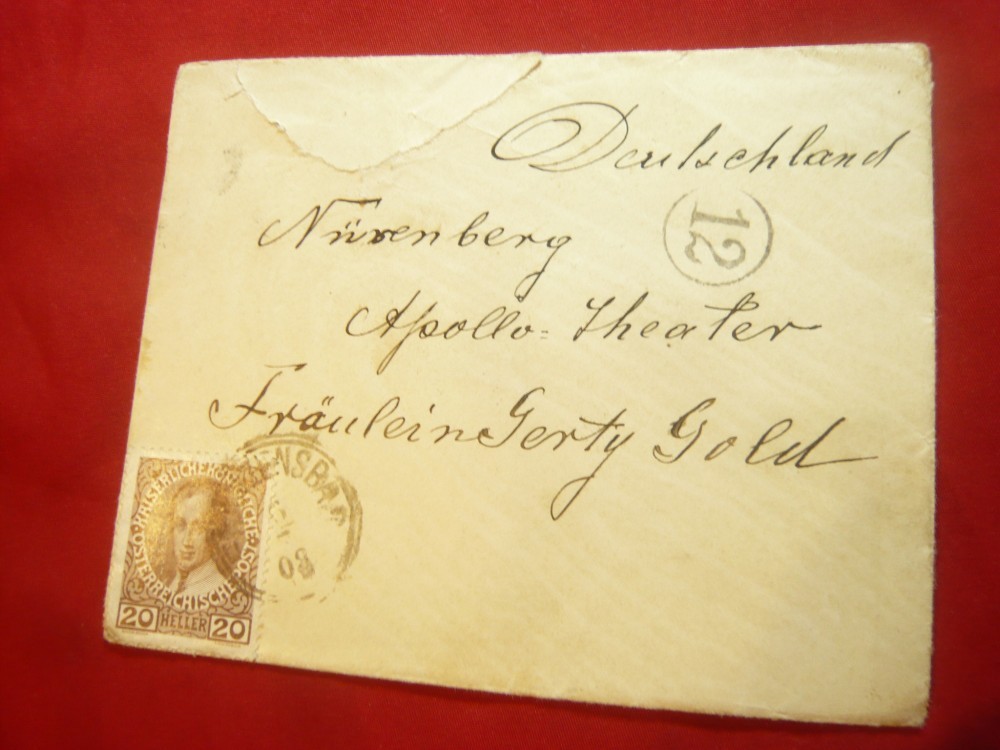 Deutschland
12
Nürenberg
Apollo=Theater
Fräulein Gerty Gold
KAISERLICHE KÖNIGLICHE ÖSTERREICHISCHE POST
20 HELLER 20